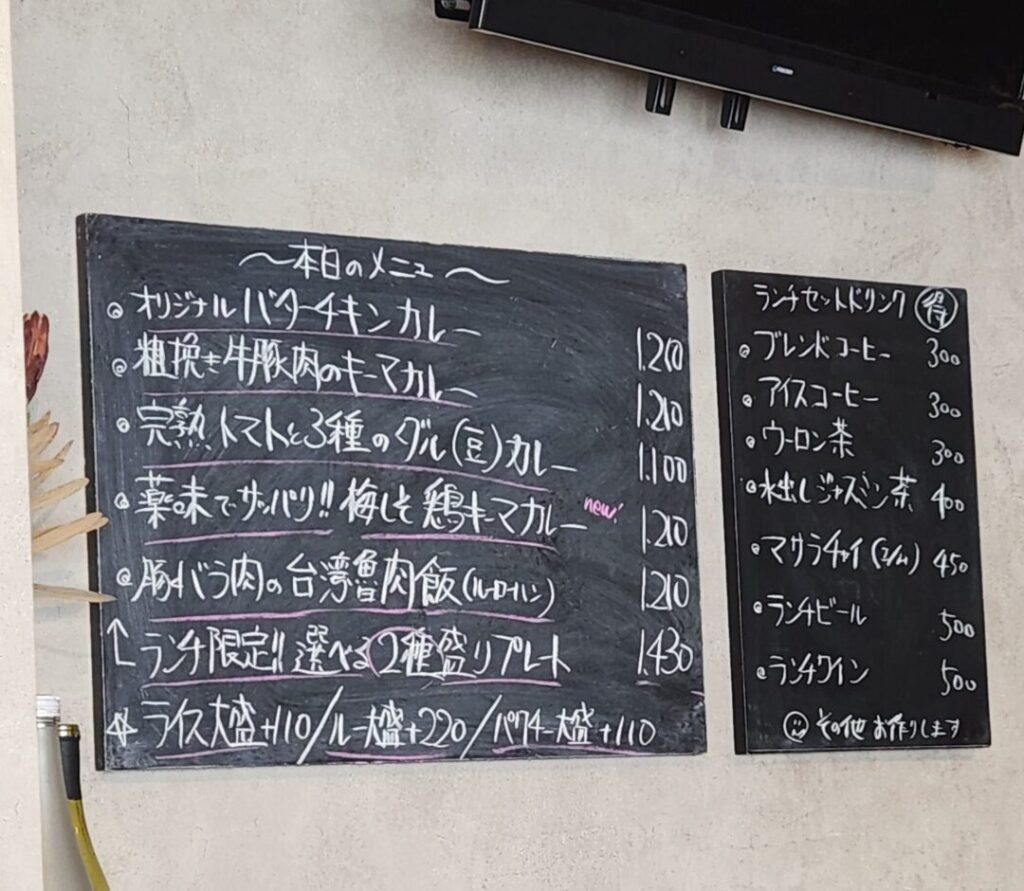 ～本日のメニュー～
◎オリジナルバターチキンカレー 1.210
◎粗挽き牛豚肉のキーマカレー 1.210
◎完熟トマトと3種のダル(豆)カレー 1.100
◎薬味でサッパリ!!梅しそ鶏キーマカレー new! 1.210
◎豚バラ肉の台湾魯肉飯(ルーローハン) 1.210
ランチ限定!!選べる2種盛りプレート 1.430
☆ライス大盛+110/ルー大盛+220/パクチー大盛+110
ランチセットドリンク 得
◎ブレンドコーヒー 300
◎アイスコーヒー 300
◎ウーロン茶 300
◎水出しジャスミン茶 400
◎マサラチャイ 450
◎ランチビール 500
◎ランチワイン 500
その他お作りします